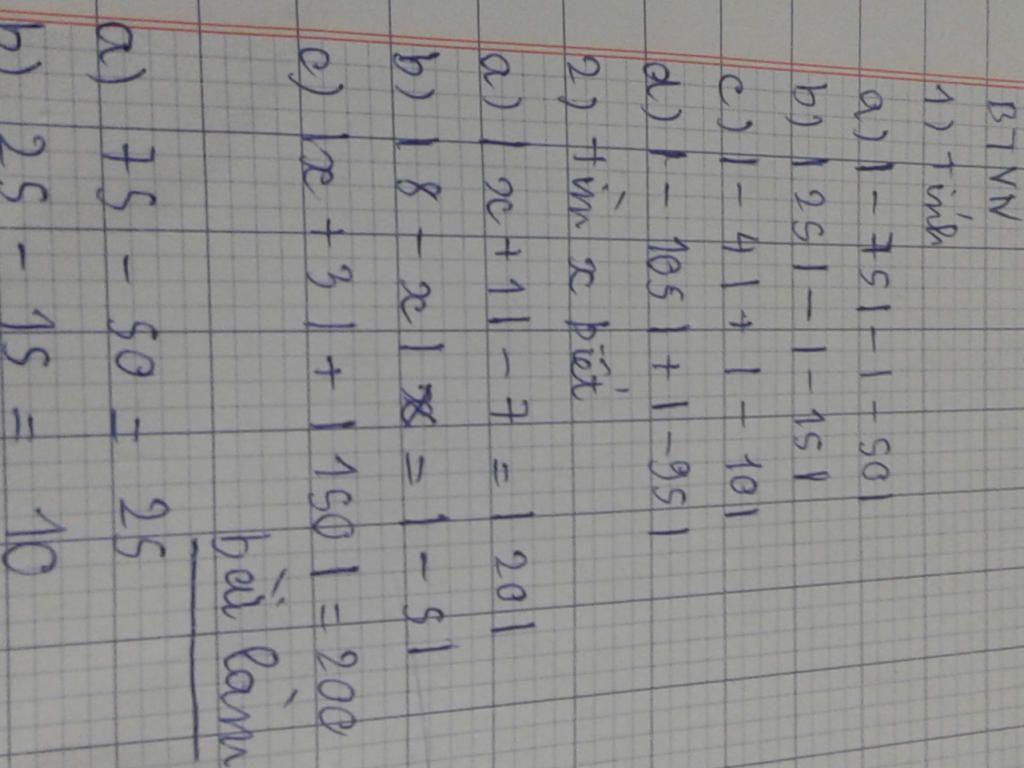 BTVN
1) tính
a) |-75|-|-50|
b) |25|-|-15|
c) |-4|+|-10|
d) |-105|+|-95|
2) tìm x biết
a) |x+1|-7=|20|
b) |8-x|=|-5|
c) |x+3|+|150|=200
bài làm
a) 75-50=25
b) 25-15=10